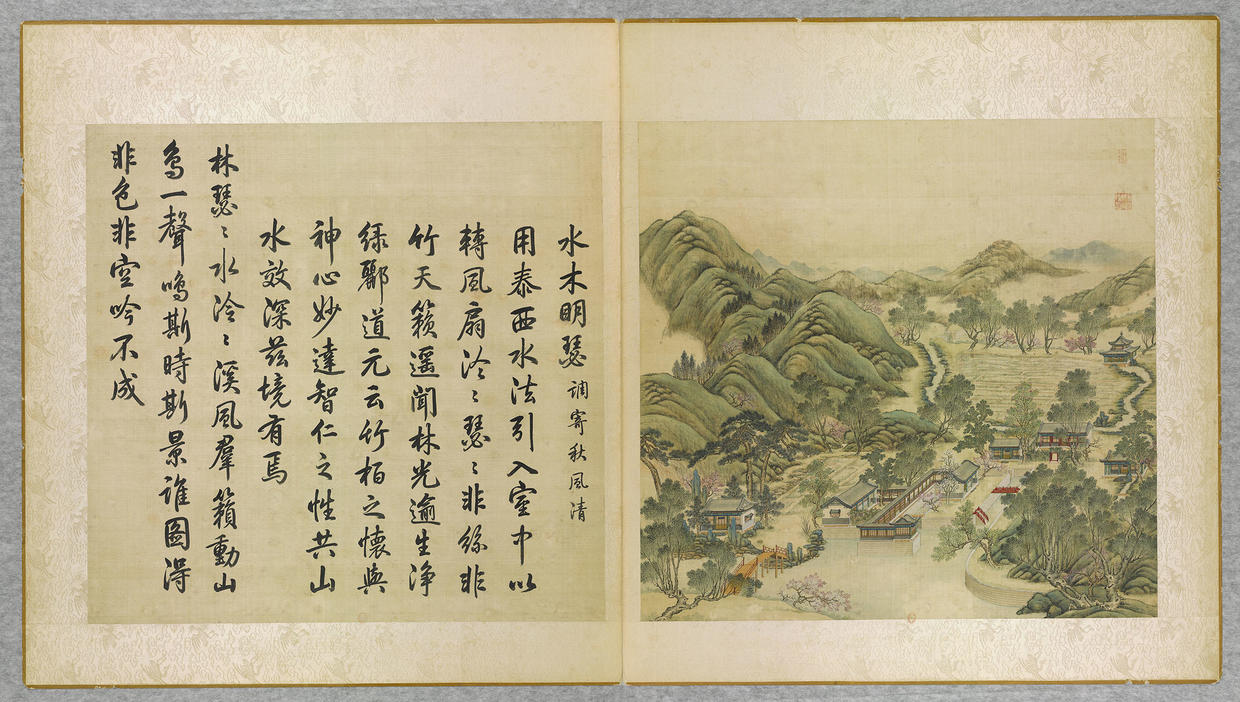 水木明瑟 調寄秋風清
用泰西水法引入室中以
轉風扇泠〻瑟〻非絲非
竹天籟遥聞林光逾生浄
緑酈道元云竹柏之懷與
神心妙達智仁之性共山
水效深茲境有焉
林瑟〻水泠〻溪風羣籟動山
鳥一聲鳴斯時斯景誰圖得
非色非空吟不成